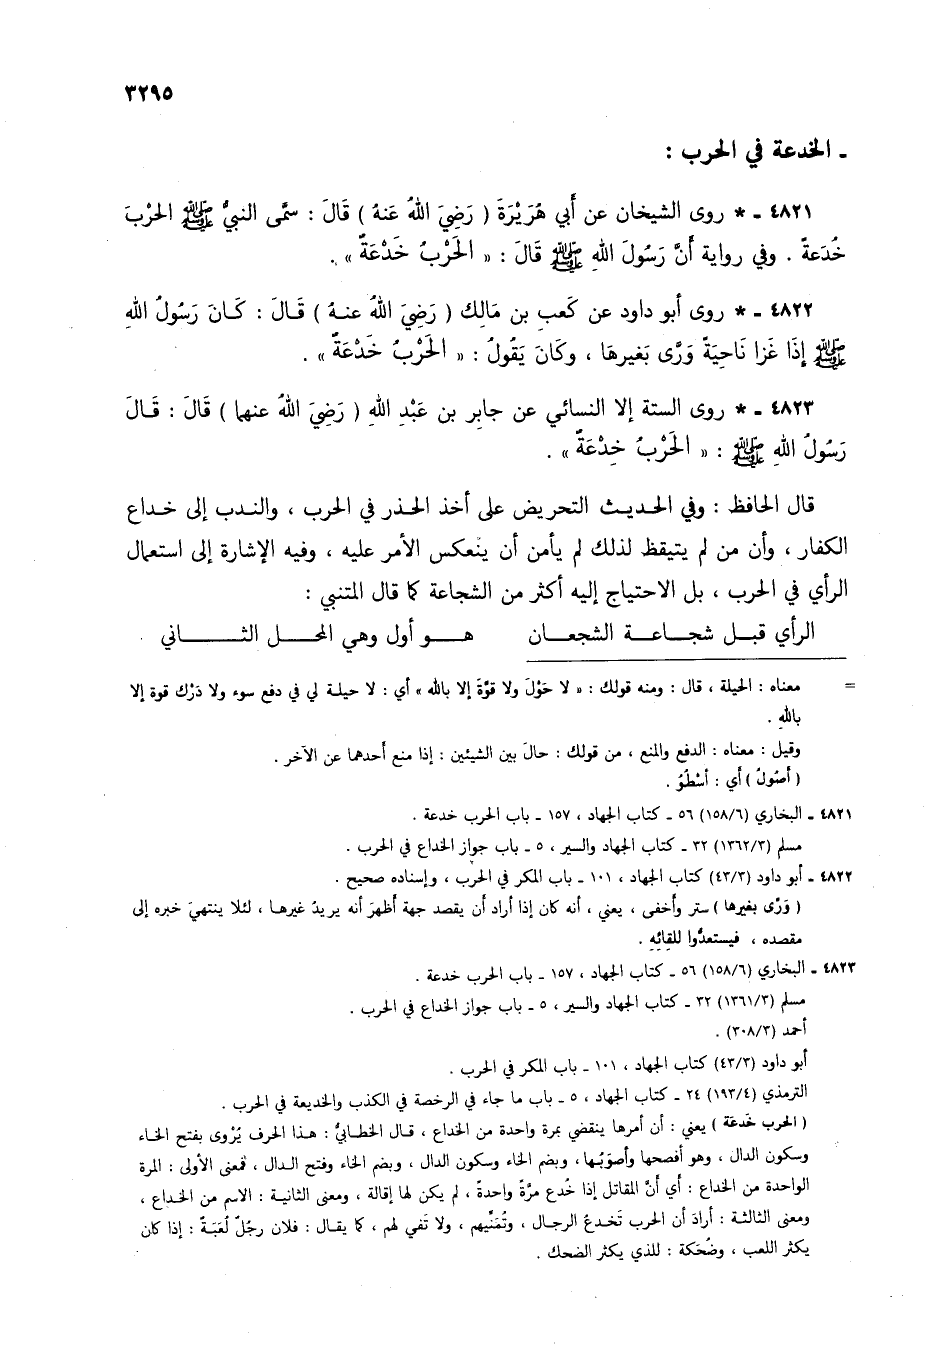 ٣٢٩٥
ـ الخدعة في الحرب :
٤٨٢١ ـ * روى الشيخان عن أَبي هُرَيْرَةَ ( رَضِيَ اللهُ عَنهُ ) قَالَ : سمَّى النبيُّ ﷺ الحَرْبَ
خُدَعةً . وفي رواية أَنَّ رَسُولَ اللهِ ﷺ قَالَ : « الحَرْبُ خَدْعَةٌ » .
٤٨٢٢ ـ * روى أبو داود عن كَعبِ بن مَالِك ( رَضِيَ اللهُ عنهُ ) قَالَ : كَانَ رَسُولُ اللهِ
ﷺ إِذَا غَزا نَاحِيَةً وَرَّى بَغيرهَا ، وكَانَ يَقُولُ : « الحَرْبُ خَدْعَةٌ » .
٤٨٢٣ ـ * روى الستة إلا النسائي عن جابِر بن عَبْدِ اللهِ ( رَضِيَ اللهُ عنهما ) قَالَ : قَالَ
رَسُولُ اللهِ ﷺ : « الحَرْبُ خِدْعَةٌ » .
قال الحافظ : وفي الحديث التحريض على أخذ الحذر في الحرب ، والندب إلى خداع
الكفار ، وأن من لم يتيقظ لذلك لم يأمن أن ينعكس الأمر عليه ، وفيه الإشارة إلى استعمال
الرأي في الحرب ، بل الاحتياج إليه أكثر من الشجاعة كما قال المتنبي :
الرأي قبل شجاعة الشجعان هو أول وهي المحل الثاني
= معناه : الحيلة ، قال : ومنه قولك : « لا حَوْلَ ولا قوَّةَ إلا بالله » أي : لا حيلة لي في دفع سوء ولا دَرْك قوة إلا
باللهِ .
وقيل : معناه : الدفع والمنع ، من قولك : حالَ بين الشيئين : إذا منع أحدهما عن الآخر .
( أَصُولُ ) أي : أسْطُوُ .
٤٨٢١ ـ البخاري (١٥٨/٦) ٥٦ ـ كتاب الجهاد ، ١٥٧ ـ باب الحرب خدعة .
مسلم (١٣٦٢/٣) ٣٢ ـ كتاب الجهاد والسير ، ٥ ـ باب جواز الخداع في الحرب .
٤٨٢٢ ـ أبو داود (٤٣/٣) كتاب الجهاد ، ١٠١ ـ باب المكر في الحرب ، وإسناده صحيح .
( وَرَّى بغيرها ) ستر وأخفى ، يعني ، أنه كان إذا أراد أن يقصد جهة أظهرَ أنه يريدُ غيرها ، لئلا ينتهيَ خبره إلى
مقصده ، فيستعدُّوا للقائِهِ .
٤٨٢٣ ـ البخاري (١٥٨/٦) ٥٦ ـ كتاب الجهاد ، ١٥٧ ـ باب الحرب خدعة .
مسلم (١٣٦١/٣) ٣٢ ـ كتاب الجهاد والسير ، ٥ ـ باب جواز الخداع في الحرب .
أحمد (٣٠٨/٣) .
أبو داود (٤٣/٣) كتاب الجهاد ، ١٠١ ـ باب المكر في الحرب .
الترمذي (١٩٣/٤) ٢٤ ـ كتاب الجهاد ، ٥ ـ باب ما جاء في الرخصة في الكذب والخديعة في الحرب .
( الحرب خَدعَة ) يعني : أن أمرها ينقضي بمرة واحدة من الخداع ، قال الخطابيُّ : هذا الحرف يُرْوى بفتح الخاء
وسكون الدال ، وهو أفصحها وأصوَبُها ، وبضم الخاء وسكون الدال ، وبضم الخاء وفتح الدال ، فمعنى الأولى : المرة
الواحدة من الخداع : أي أنَّ المقاتل إذا خُدع مرَّةً واحدةً ، لم يكن لها إقالة ، ومعنى الثانية : الاسم من الخداع ،
ومعنى الثالثة : أرادَ أن الحرب تَخدعُ الرجال ، وتُمَنِّيهم ، ولا تَفي لهم ، كما يقال : فلان رجُلٌ لُعَبَةٌ : إذا كان
يكثر اللعب ، وضُحَكة : للذي يكثر الضحك .